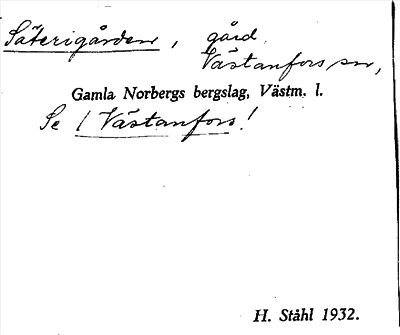 Säterigården, gård
Västanfors sn,
Gamla Norbergs bergslag, Västm. l.
Se / Västanfors!
H. Ståhl 1932.